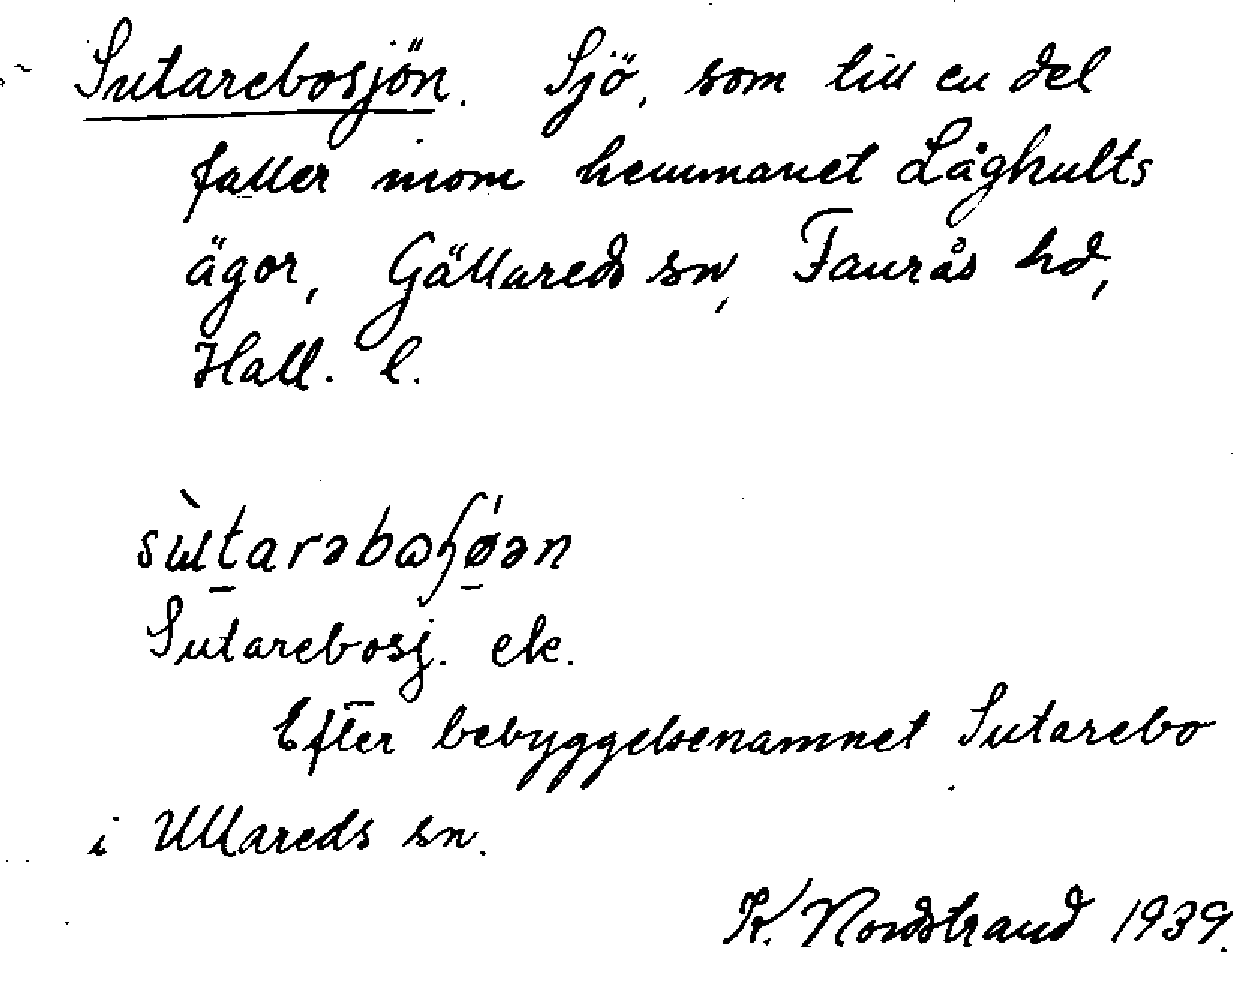 Sutarebosjön. Sjö, som till en del
faller inom hemmanet Låghults
ägor, Gällareds sn, Faurås hd,
Hall. l.
sɯ̀tarəbɷʃǿən
Sutarebosj. ek.
Efter bebyggelsenamnet Sutarebo
i Ullareds sn.
K. Nordstrand 1939.